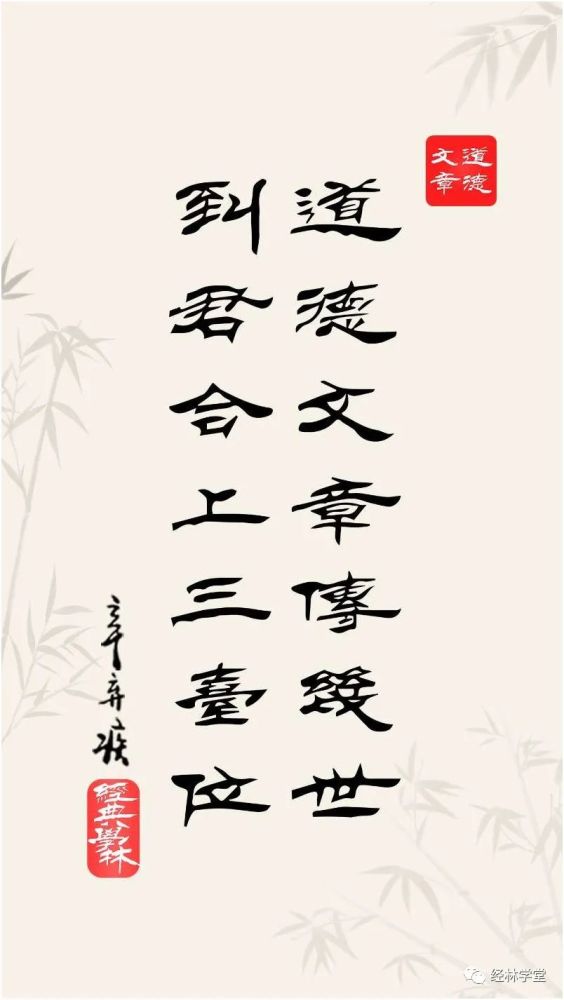 道德
文章
道德文章傳幾世
到君合上三臺位
辛弃疾
經典學林
经林学堂